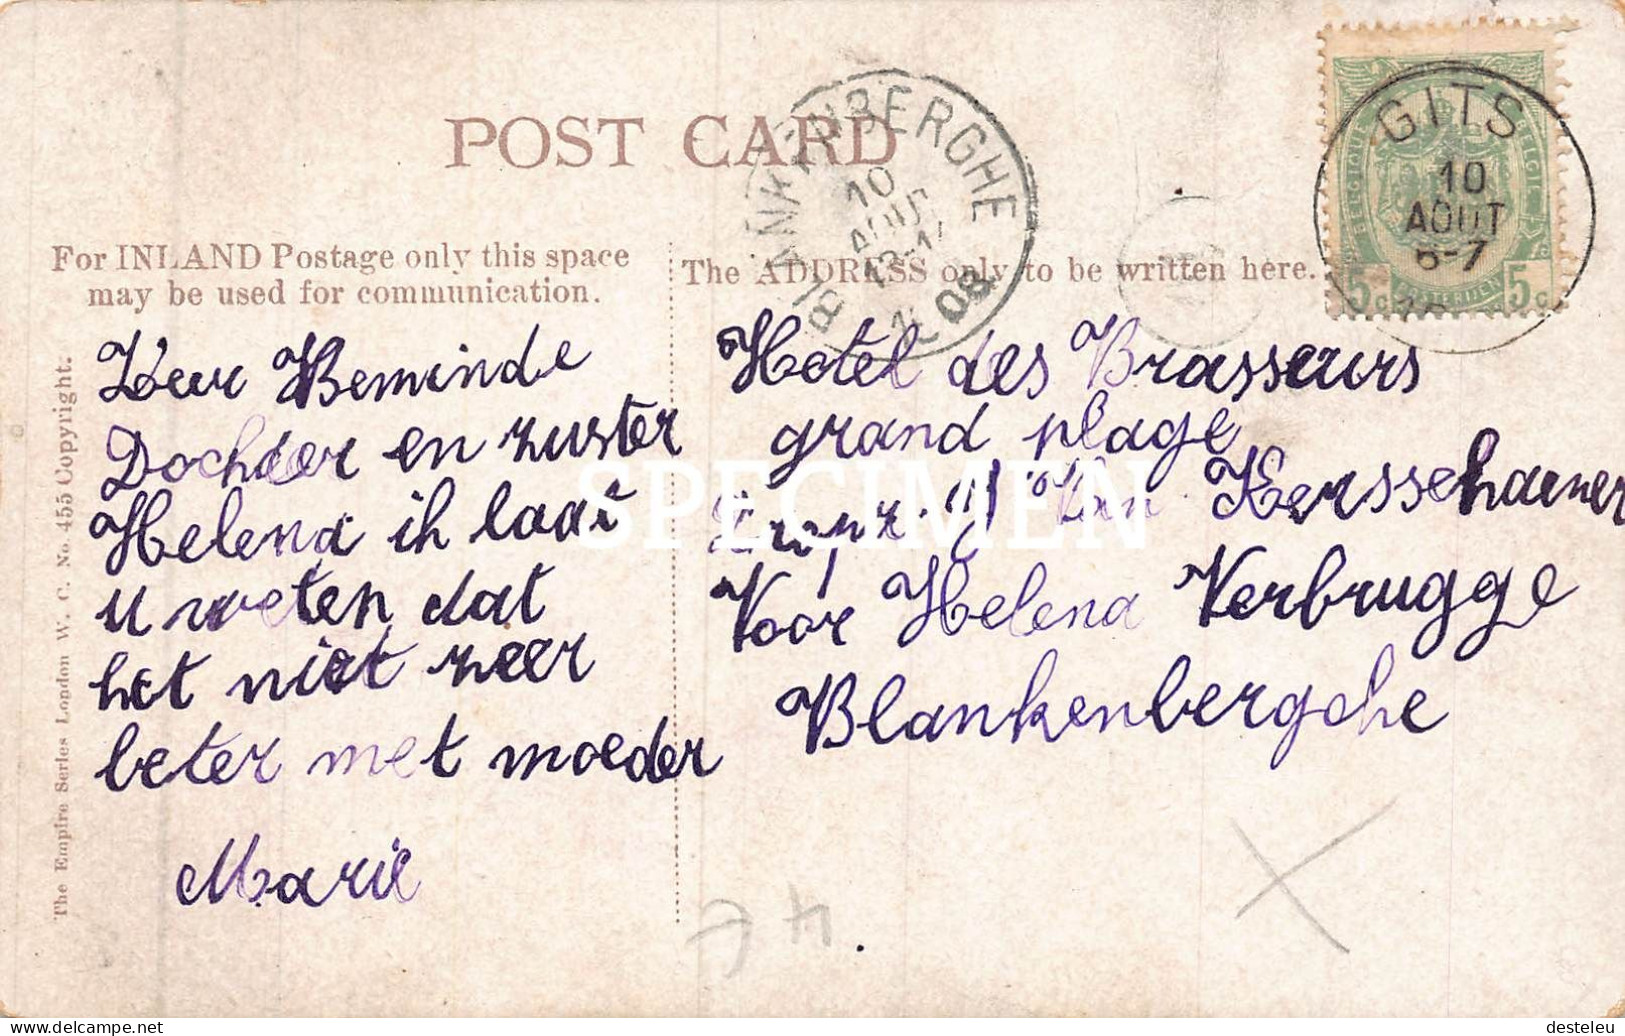 POST CARD
BLANKENBERGHE
10
AOUT
08
GITS
10
AOUT
6-7
BELGIQUE
BELGIE
5c 5c
For INLAND Postage only this space
may be used for communication.
The ADDRESS only to be written here.
The Empire Series London W. C. No. 455 Copyright.
Zeer Beminde
Dochder en zuster
Helena ik laat
u weten dat
het niet zeer
beter met moeder
Marie
Hotel des Brasseurs
grand plage
Van Kersschaever
Voor Helena Verbrugge
Blankenbergche
SPECIMEN
delcampe.net
desteleu